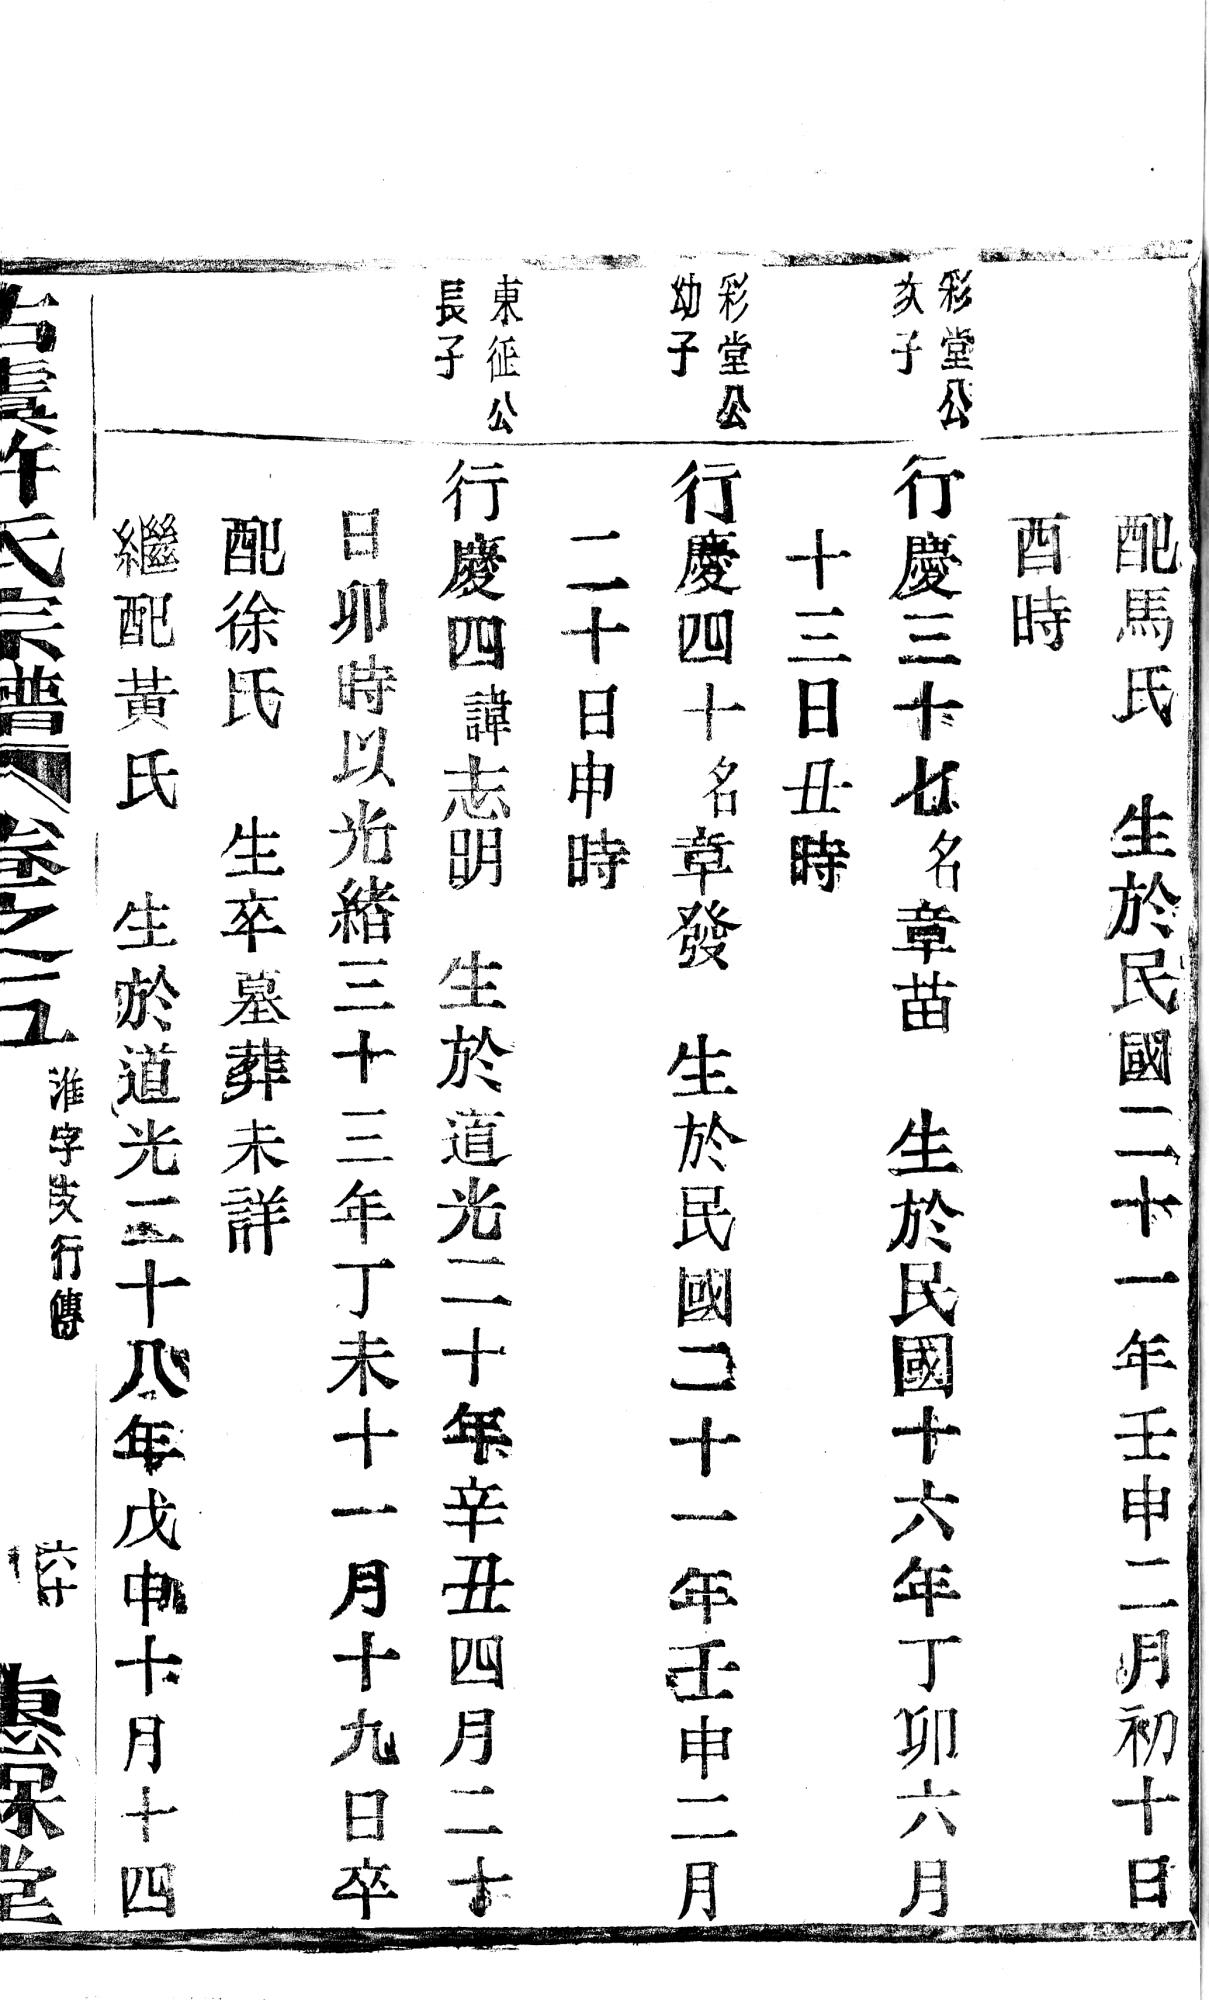 配馬氏　生於民國二十一年壬申二月初十日
酉時
彩堂公
次子
行慶三十七名章苗　生於民國十六年丁卯六月
十三日丑時
彩堂公
幼子
行慶四十名章發　生於民國二十一年壬申二月
二十日申時
東征公
長子
行慶四諱志明　生於道光二十年辛丑四月二十
日卯時以光緒三十三年丁未十一月十九日卒
配徐氏　生卒墓葬未詳
繼配黃氏　生於道光二十八年戊申十月十四
古虞許氏宗譜　卷之二
淮字支行傳
六十
堂